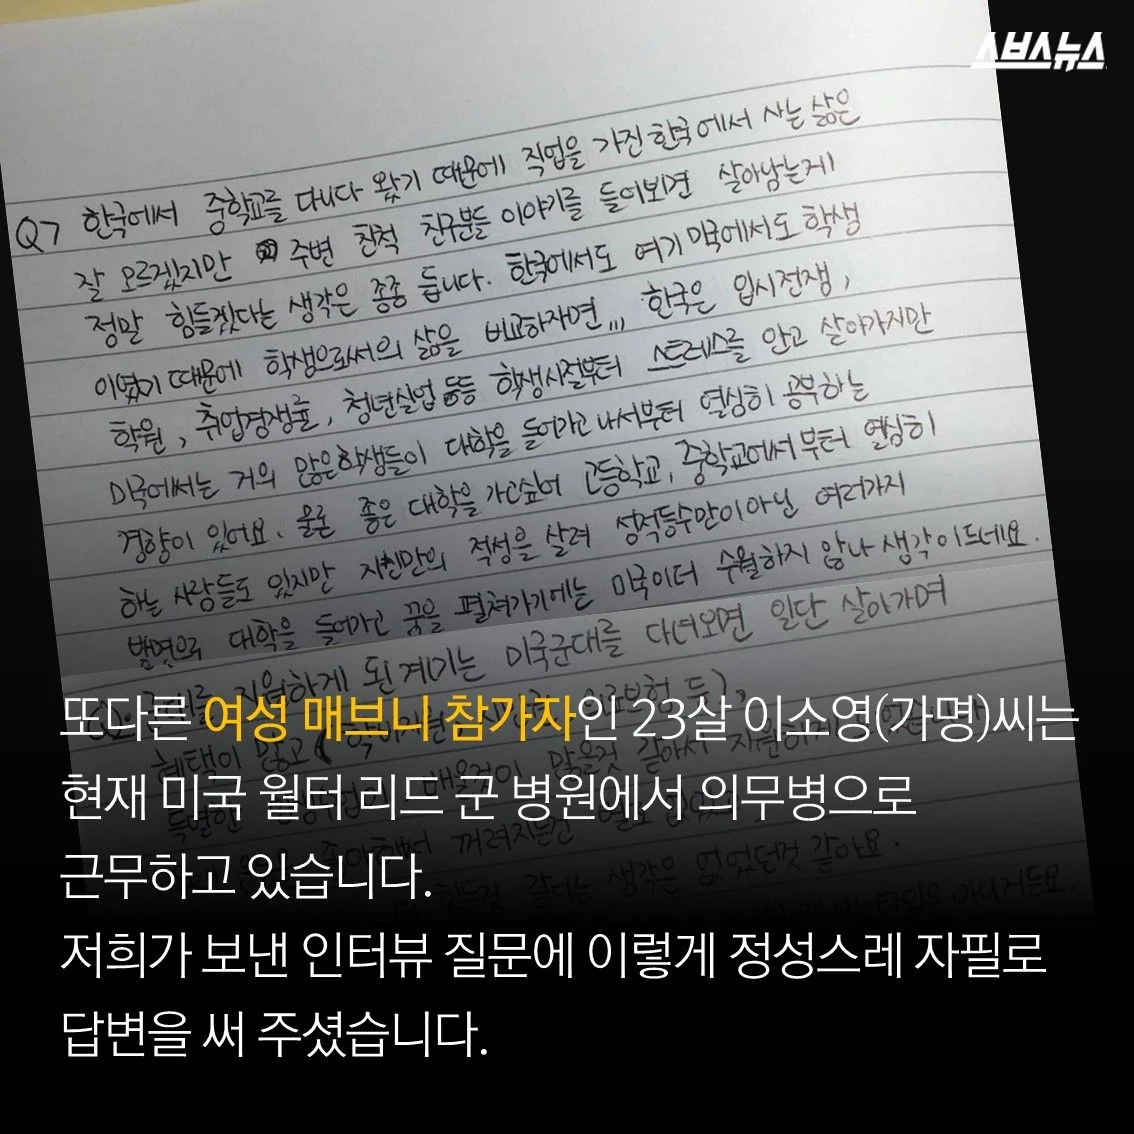 스브스뉴스
Q7 한국에서 중학교를 다니다 왔기 때문에 직업을 가진 한국에서 사는 삶은
잘 모르겠지만 주변 친척 친구분들 이야기를 들어보면 살아남는게
정말 힘들겠다는 생각은 종종 듭니다. 한국에서도 여기 미국에서도 학생
이였기 때문에 학생으로써의 삶을 비교하자면,,, 한국은 입시전쟁,
학원, 취업경쟁률, 청년실업 등등 학생시절부터 스트레스를 안고 살아가지만
미국에써는 거의 많은학생들이 대학을 들어가고 나서부터 열심히 공부하는
경향이 있어요. 물론 좋은 대학을 가고싶어 고등학교, 중학교에서부터 열심히
하는 사람들도 있지만 자신만의 적성을 살려 성적등수만이아닌 여러가지
방면으로 대학을 들어가고 꿈을 펼쳐가기에는 미국이더 수월하지 않나 생각이드네요.
지원하게 된 계기는 미국군대를 다녀오면 일단 살아가며
혜택이 많고 의료보험 등),
많을것 같아서
꺼려지는건
힘들것 같다는 생각은 없었던것 같아요.
아니거든요.
또다른 여성 매브니 참가자인 23살 이소영(가명)씨는
현재 미국 월터 리드 군 병원에서 의무병으로
근무하고 있습니다.
저희가 보낸 인터뷰 질문에 이렇게 정성스레 자필로
답변을 써 주셨습니다.